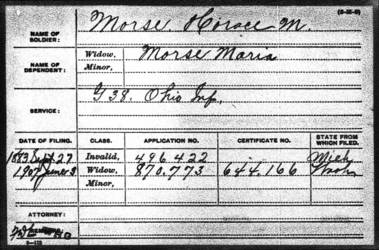 (3-15-9)
NAME OF SOLDIER: Morse, Horace M.
NAME OF DEPENDENT: Widow, Morse Maria
Minor,
SERVICE: G 38. Ohio Inf.
DATE OF FILING. CLASS. APPLICATION NO. CERTIFICATE NO. STATE FROM WHICH FILED.
1883 Sept 27 Invalid, 496.422 Mich
1907 Widow, 870.773 644.166
Minor,
ATTORNEY: